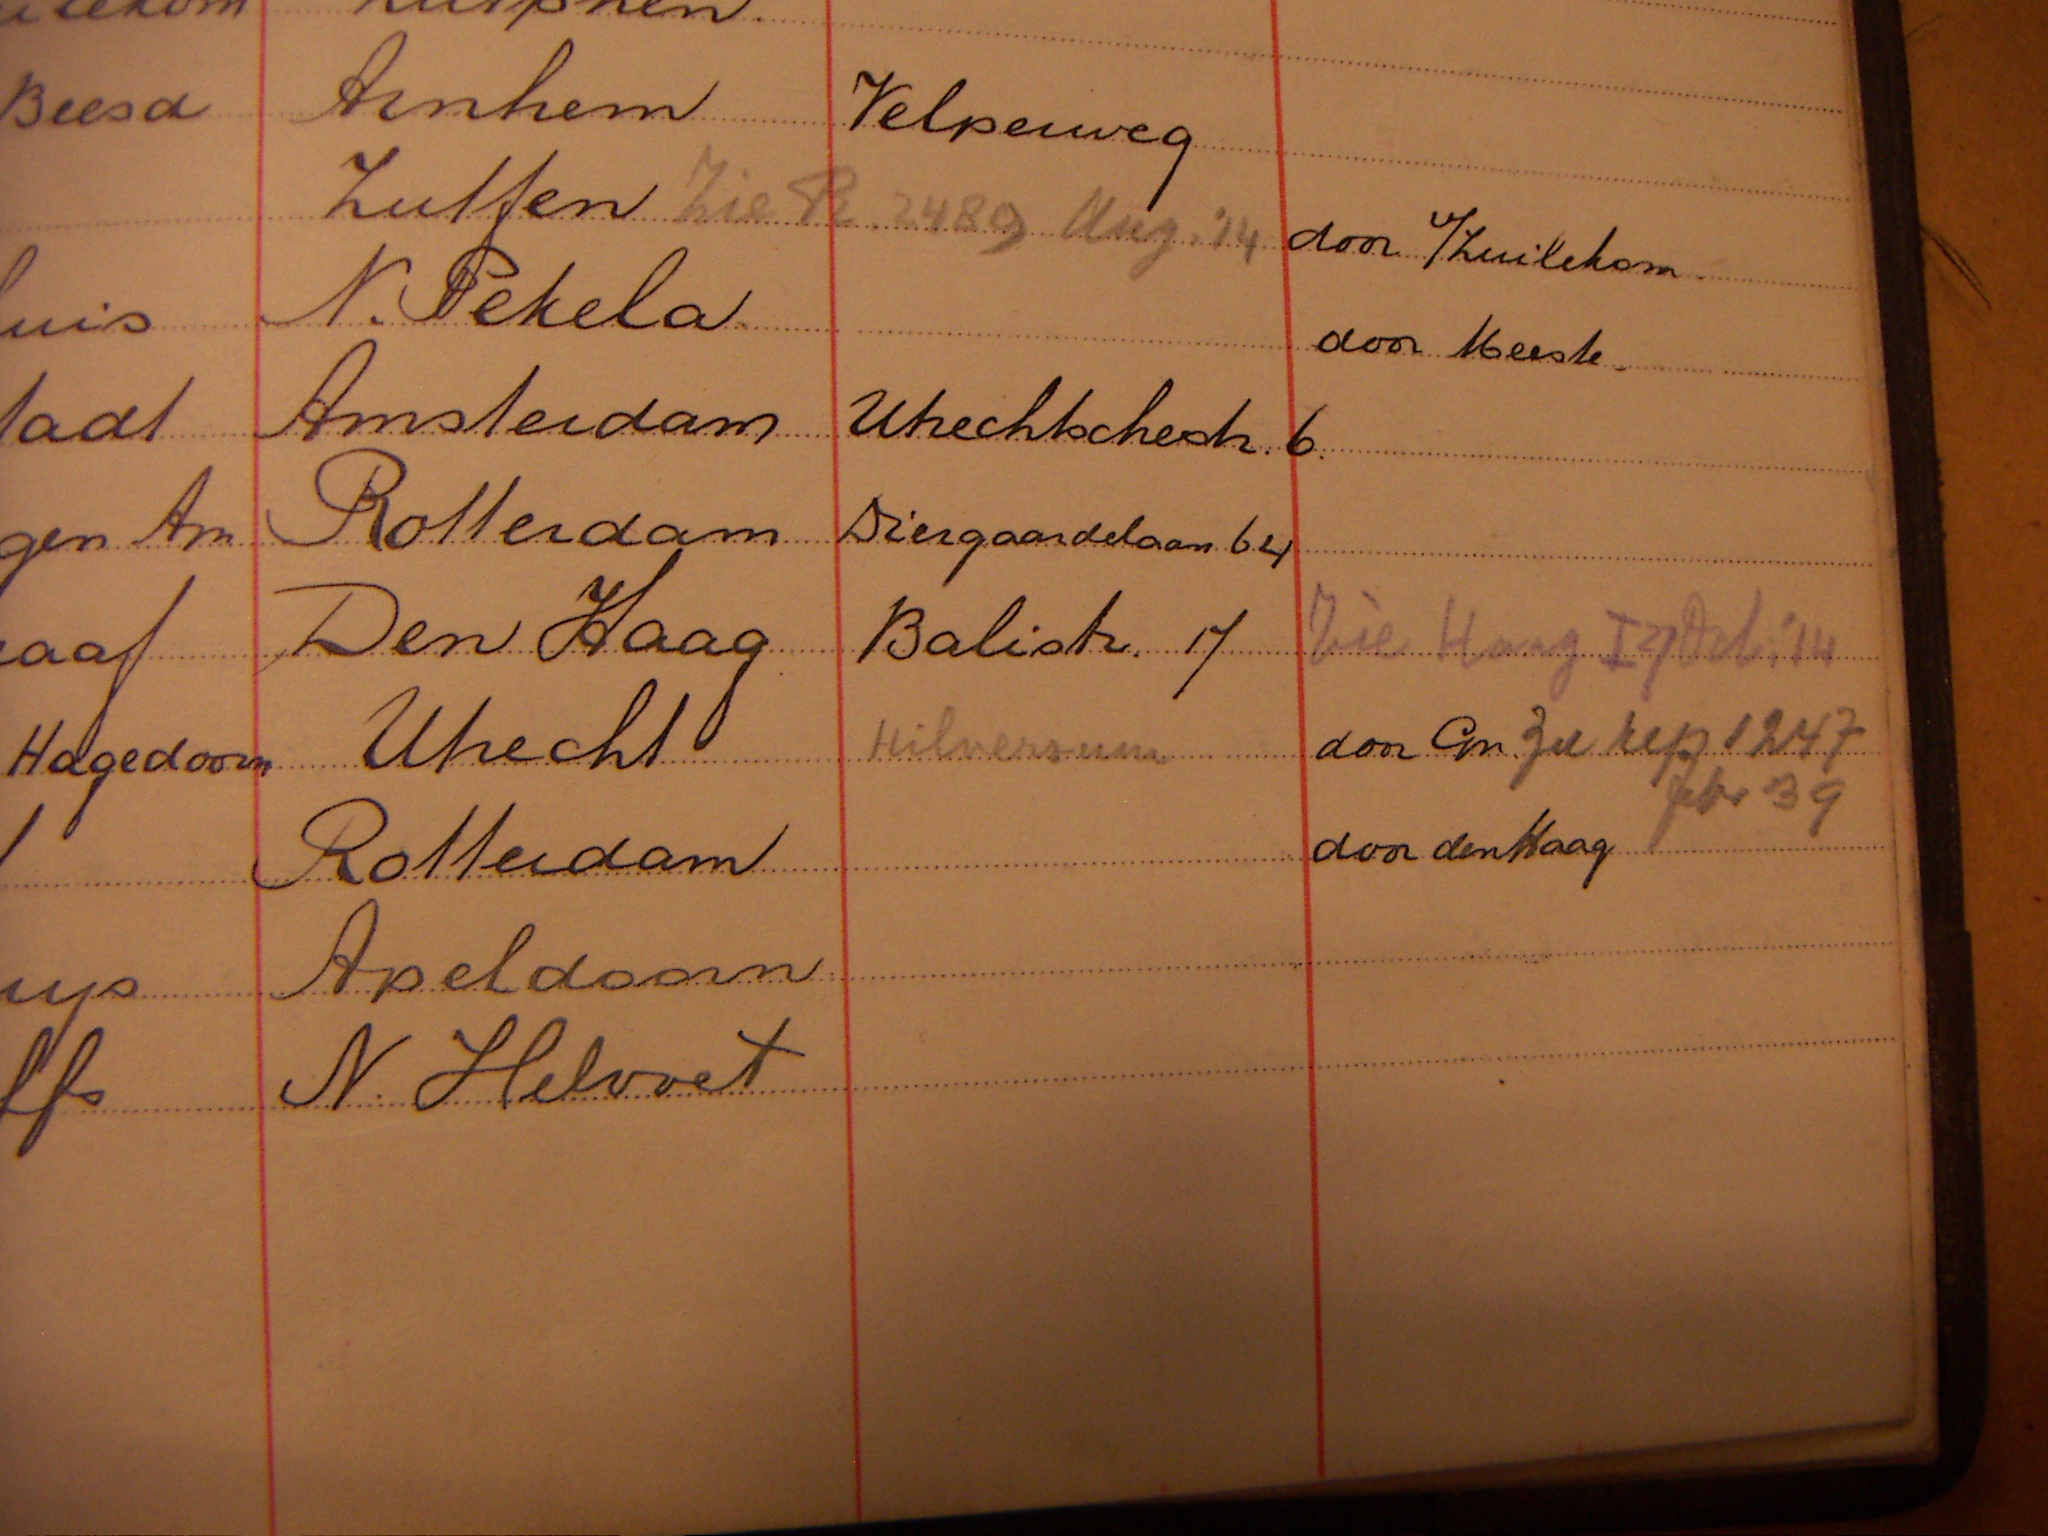 Zutphen.
Beesd Arnhem Velperweg
Zutfen Zie R. 2489 Aug. '14 door v/Zuilekom.
uis N. Pekela door Meeste.
tadt Amsterdam Utrechtschestr. 6.
gen Am Rotterdam Diergaardelaan 64
raaf Den Haag Balistr. 17 Zie Haag I 7 Oct. '14
Hagedoorn Utrecht Hilversum door Gn Zie rep 1247
febr 39
Rotterdam door den Haag
uys Apeldoorn
ffs N. Helvoet